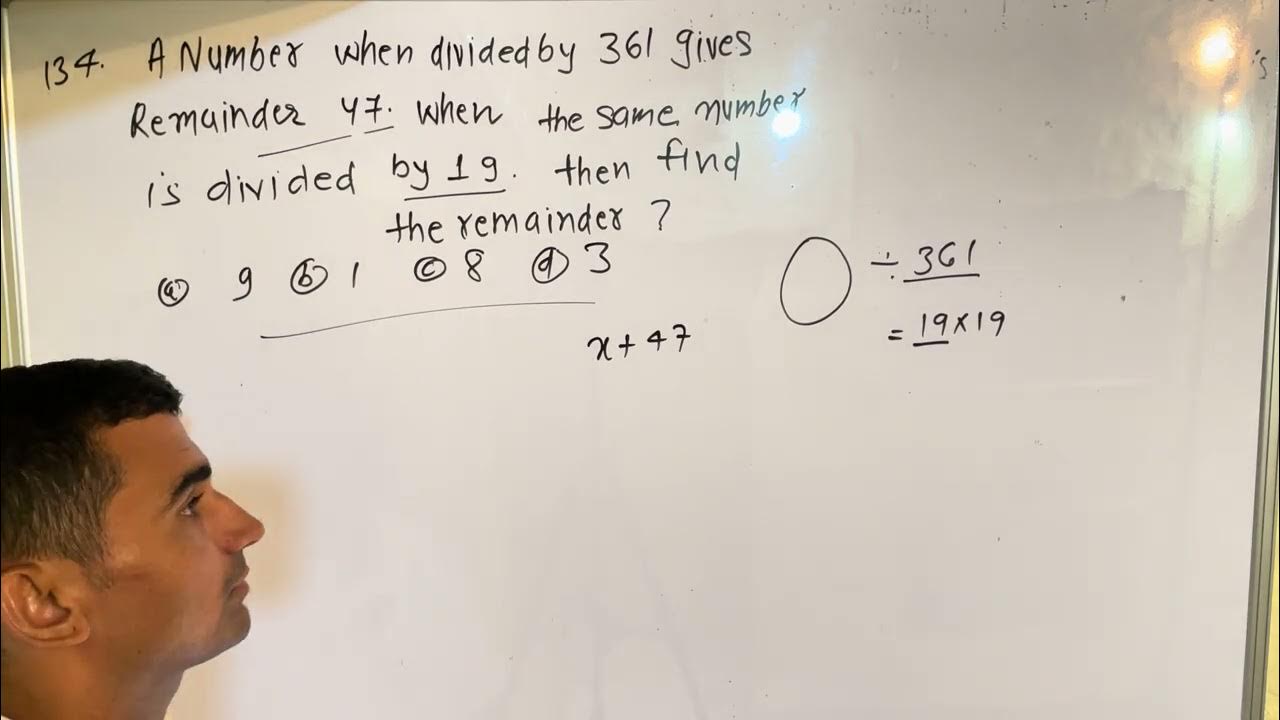 134. A Number when divided by 361 gives
Remainder 47. when the same number
is divided by 19. then find
the remainder ?
ⓐ 9 ⓑ 1 ⓒ 8 ⓓ 3
÷ 361
= 19×19
x + 47
's